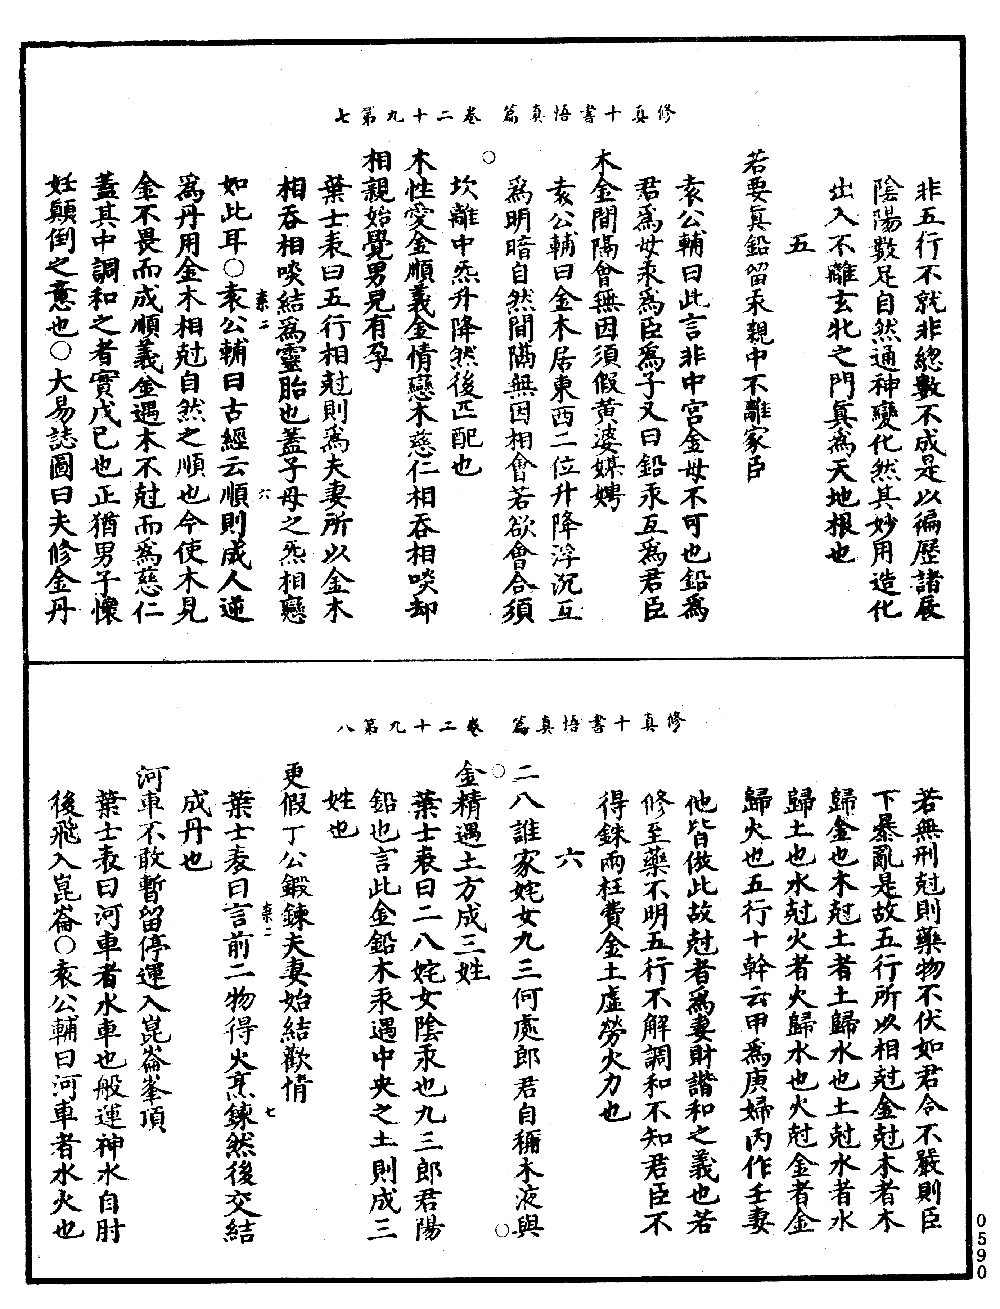 修真十書悟真篇　卷二十九第七
非五行不就非總數不成是以徧歷諸辰
陰陽數足自然通神變化然其妙用造化
出入不離玄牝之門真為天地根也
五
若要真鉛留汞親中不離家臣
袁公輔曰此言非中宮金母不可也鉛為
君為母汞為臣為子又曰鉛汞互為君臣
木金間隔會無因須假黃婆媒娉
袁公輔曰金木居東西二位升降浮沉互
為明暗自然間隔無因相會若欲會合須
○
坎離中炁升降然後匹配也
木性愛金順義金情戀木慈仁相吞相啖却
相親始覺男兒有孕
葉士表曰五行相尅則為夫妻所以金木
相吞相啖結為靈胎也蓋子母之炁相戀
柰二　六
如此耳○袁公輔曰古經云順則成人逆
為丹用金木相尅自然之順也今使木見
金不畏而成順義金遇木不尅而為慈仁
蓋其中調和之者實戊己也正猶男子懷
妊顛倒之意也○大易誌圖曰夫修金丹
修真十書悟真篇　卷二十九第八
若無刑尅則藥物不伏如君令不嚴則臣
下暴亂是故五行所以相尅金尅木者木
歸金也木尅土者土歸木也土尅水者水
歸土也水尅火者火歸水也火尅金者金
歸火也五行十幹云甲為庚婦丙作壬妻
他皆倣此故尅者為妻財諧和之義也若
修至藥不明五行不解調和不知君臣不
得銖兩枉費金土虛勞火力也
六
二八誰家姹女九三何處郎君自稱木液與
○　○
金精遇土方成三姓
葉士表曰二八姹女陰汞也九三郎君陽
鉛也言此金鉛木汞遇中央之土則成三
姓也
更假丁公鍛鍊夫妻始結歡情
柰二　七
葉士表曰言前二物得火烹鍊然後交結
成丹也
河車不敢暫留停運入崑崙峯頂
葉士表曰河車者水車也般運神水自肘
後飛入崑崙○袁公輔曰河車者水火也
0590